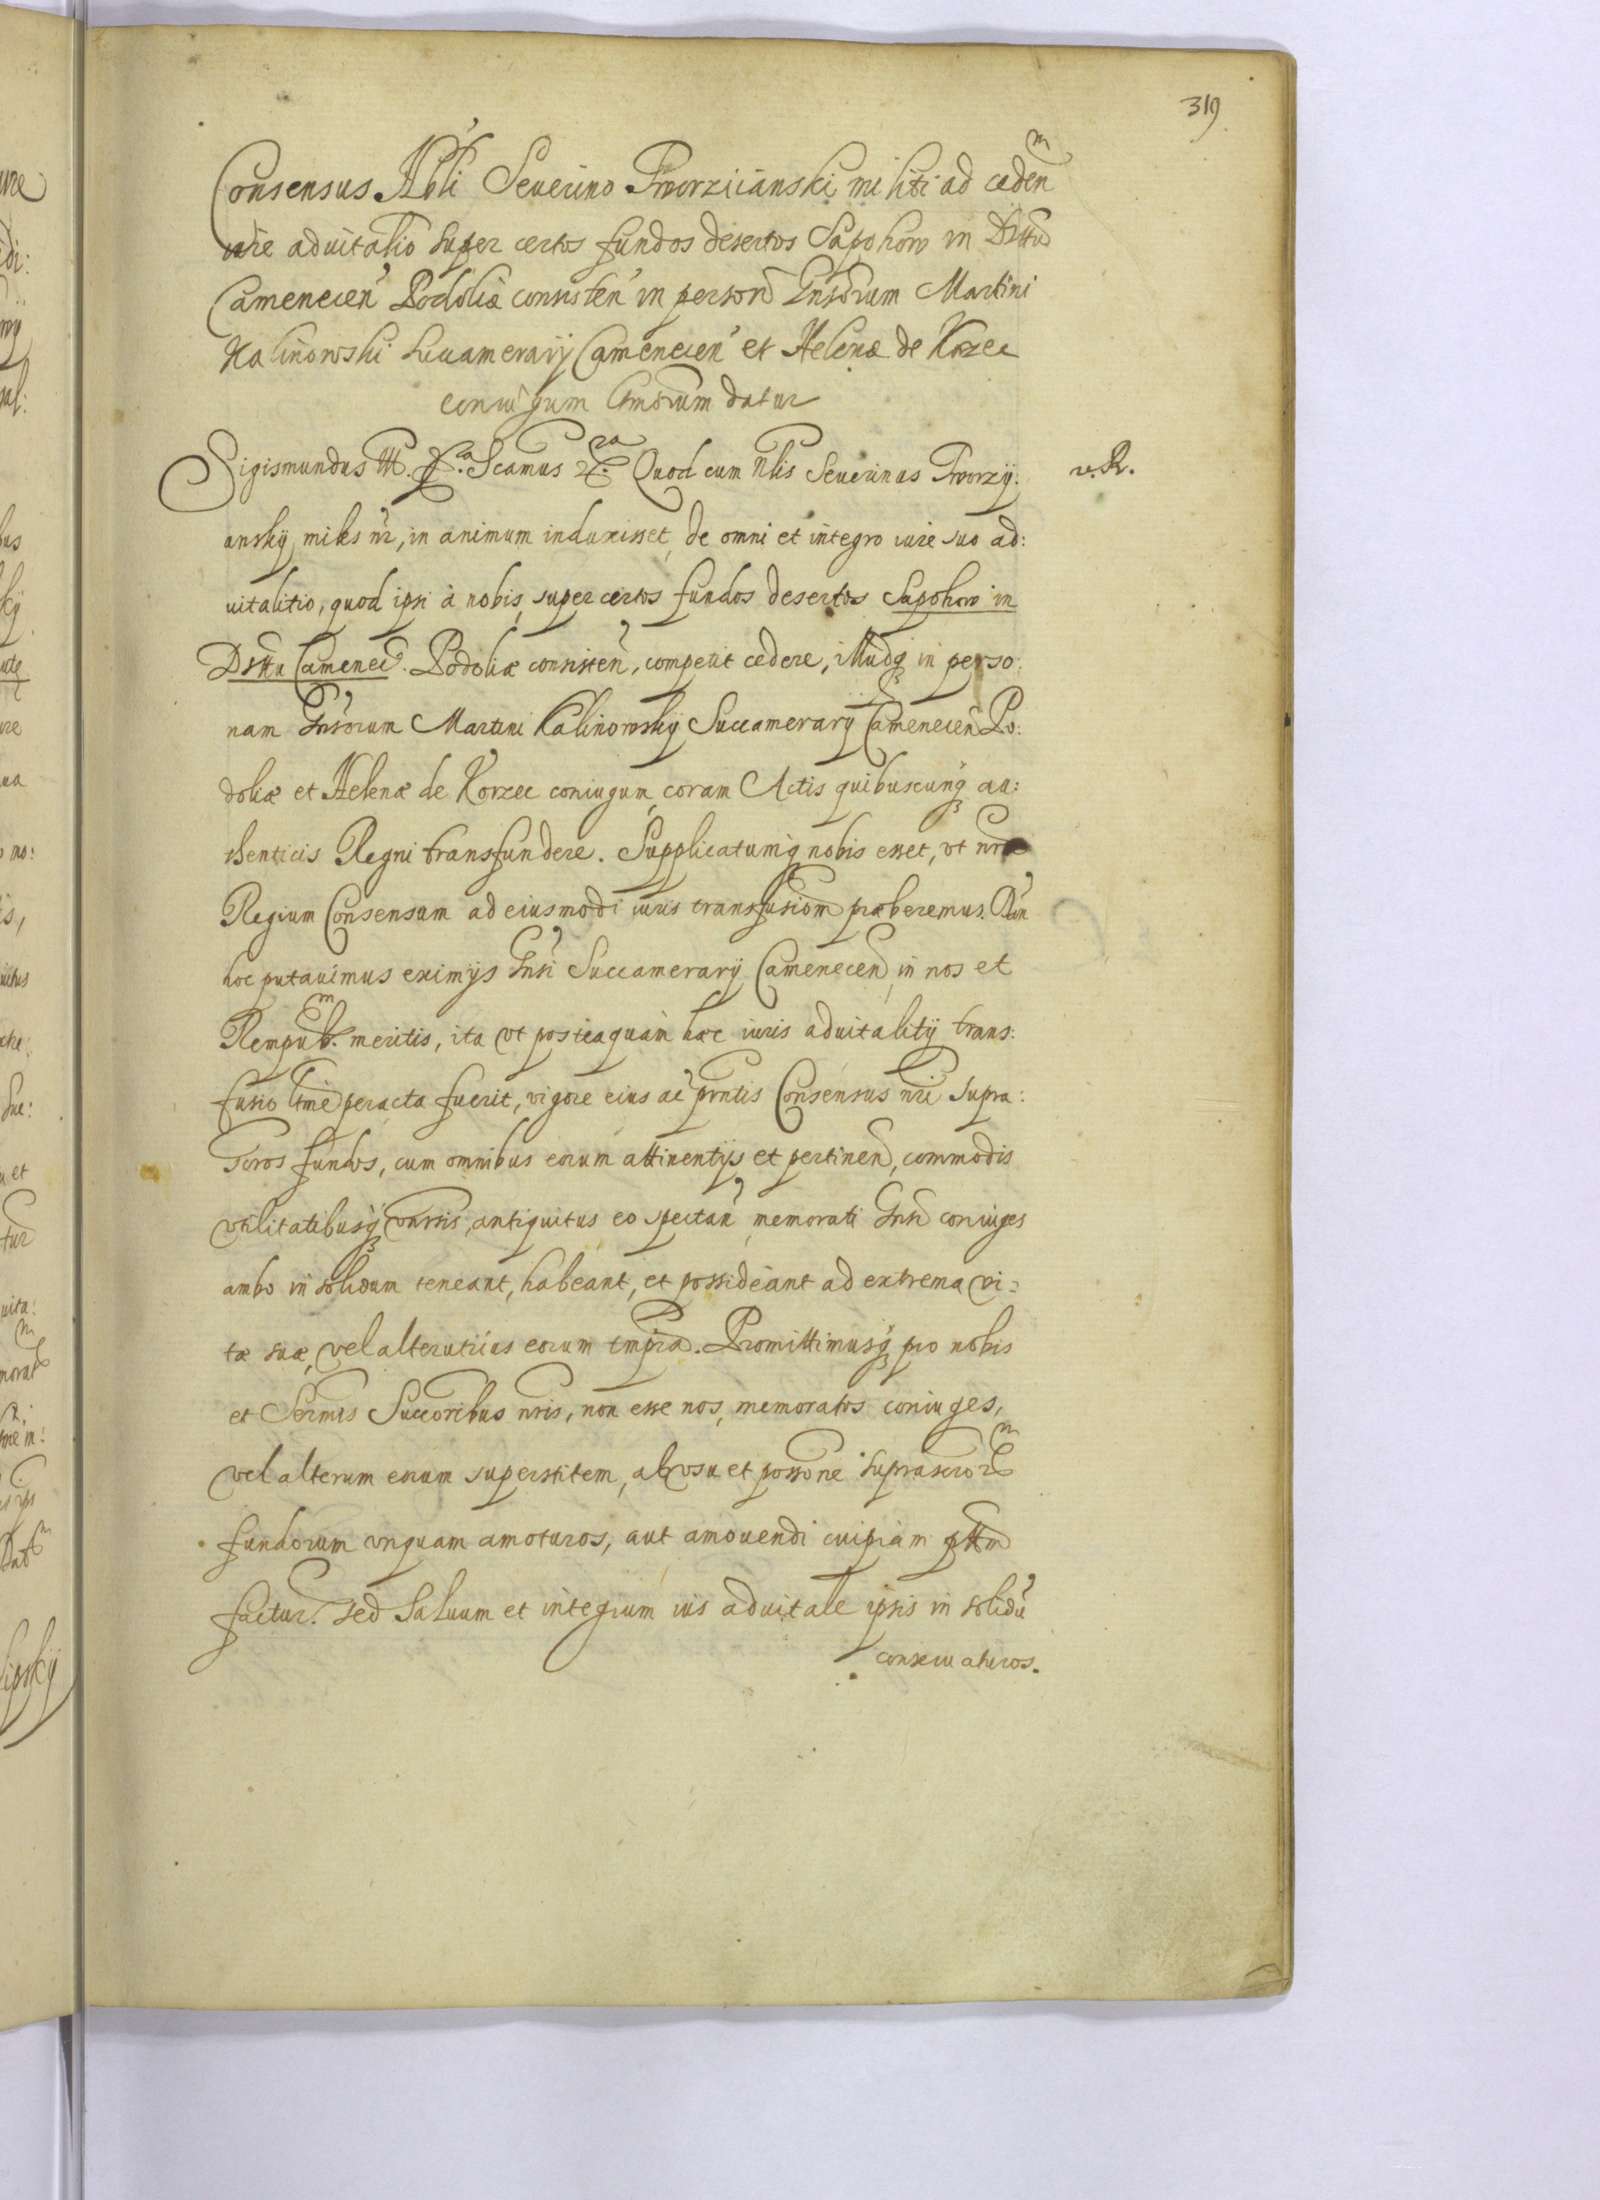 319
Consensus Nbli Seuerino Tworziianski militi ad cedenm
iure aduitalio super certos fundos desertos Sapohow in Dsttu
Camenecen Podoliæ consisten in person Gnsorum Martini
Kalinowski Succamerarij Camenecen et Helenæ de Korzec
coniugum Gnsorum datur
Sigismundus III. Scamus Quod cum Nblis Seuerinus Tworzij:
anskij miles nr, in animum induxisset, de omni et integro iure suo ad:
uitalitio, quod ipsi à nobis, super certos fundos desertos Sapohow in
Dsttu Camenec. Podoliæ consisten, competit cedere, illudq in perso:
nam Gnsorum Martini Kalinowskij Succamerarij Camenecen Po:
doliæ et Helenæ de Korzec coniugum, coram Actis quibuscunq au:
thenticis Regni transfundere. Supplicatumq nobis esset, vt nrm
Regium Consensum ad eiusmodi iuris transfusiom præberemus. Dan
hoc putauimus eximijs Gnsi Succamerarij Camenecen, in nos et
Rempubm. meritis, ita vt posteaquam hæc iuris aduitalitij trans:
fusio ltme peracta fuerit, vigore eius ac prntis Consensus nri supra:
scros fundos, cum omnibus eorum attinentijs et pertinen, commodis
vtilitatibusq vnrsis, antiquitus eo spectan, memorati Gnsi coniuges
ambo in solidum teneant, habeant, et possideant ad extrema vi:
tæ suæ, vel alterutrius eorum tmpra. Promittimusq pro nobis
et Sermis Succoribus nris, non esse nos, memoratos coniuges,
vel alterum eorum superstitem, ab vsu et possone suprascrorm
fundorum vnquam amoturos, aut amouendi cuipiam pttm
factur. sed saluum et integrum ius aduitale ipsis in solidu
conseruaturos.